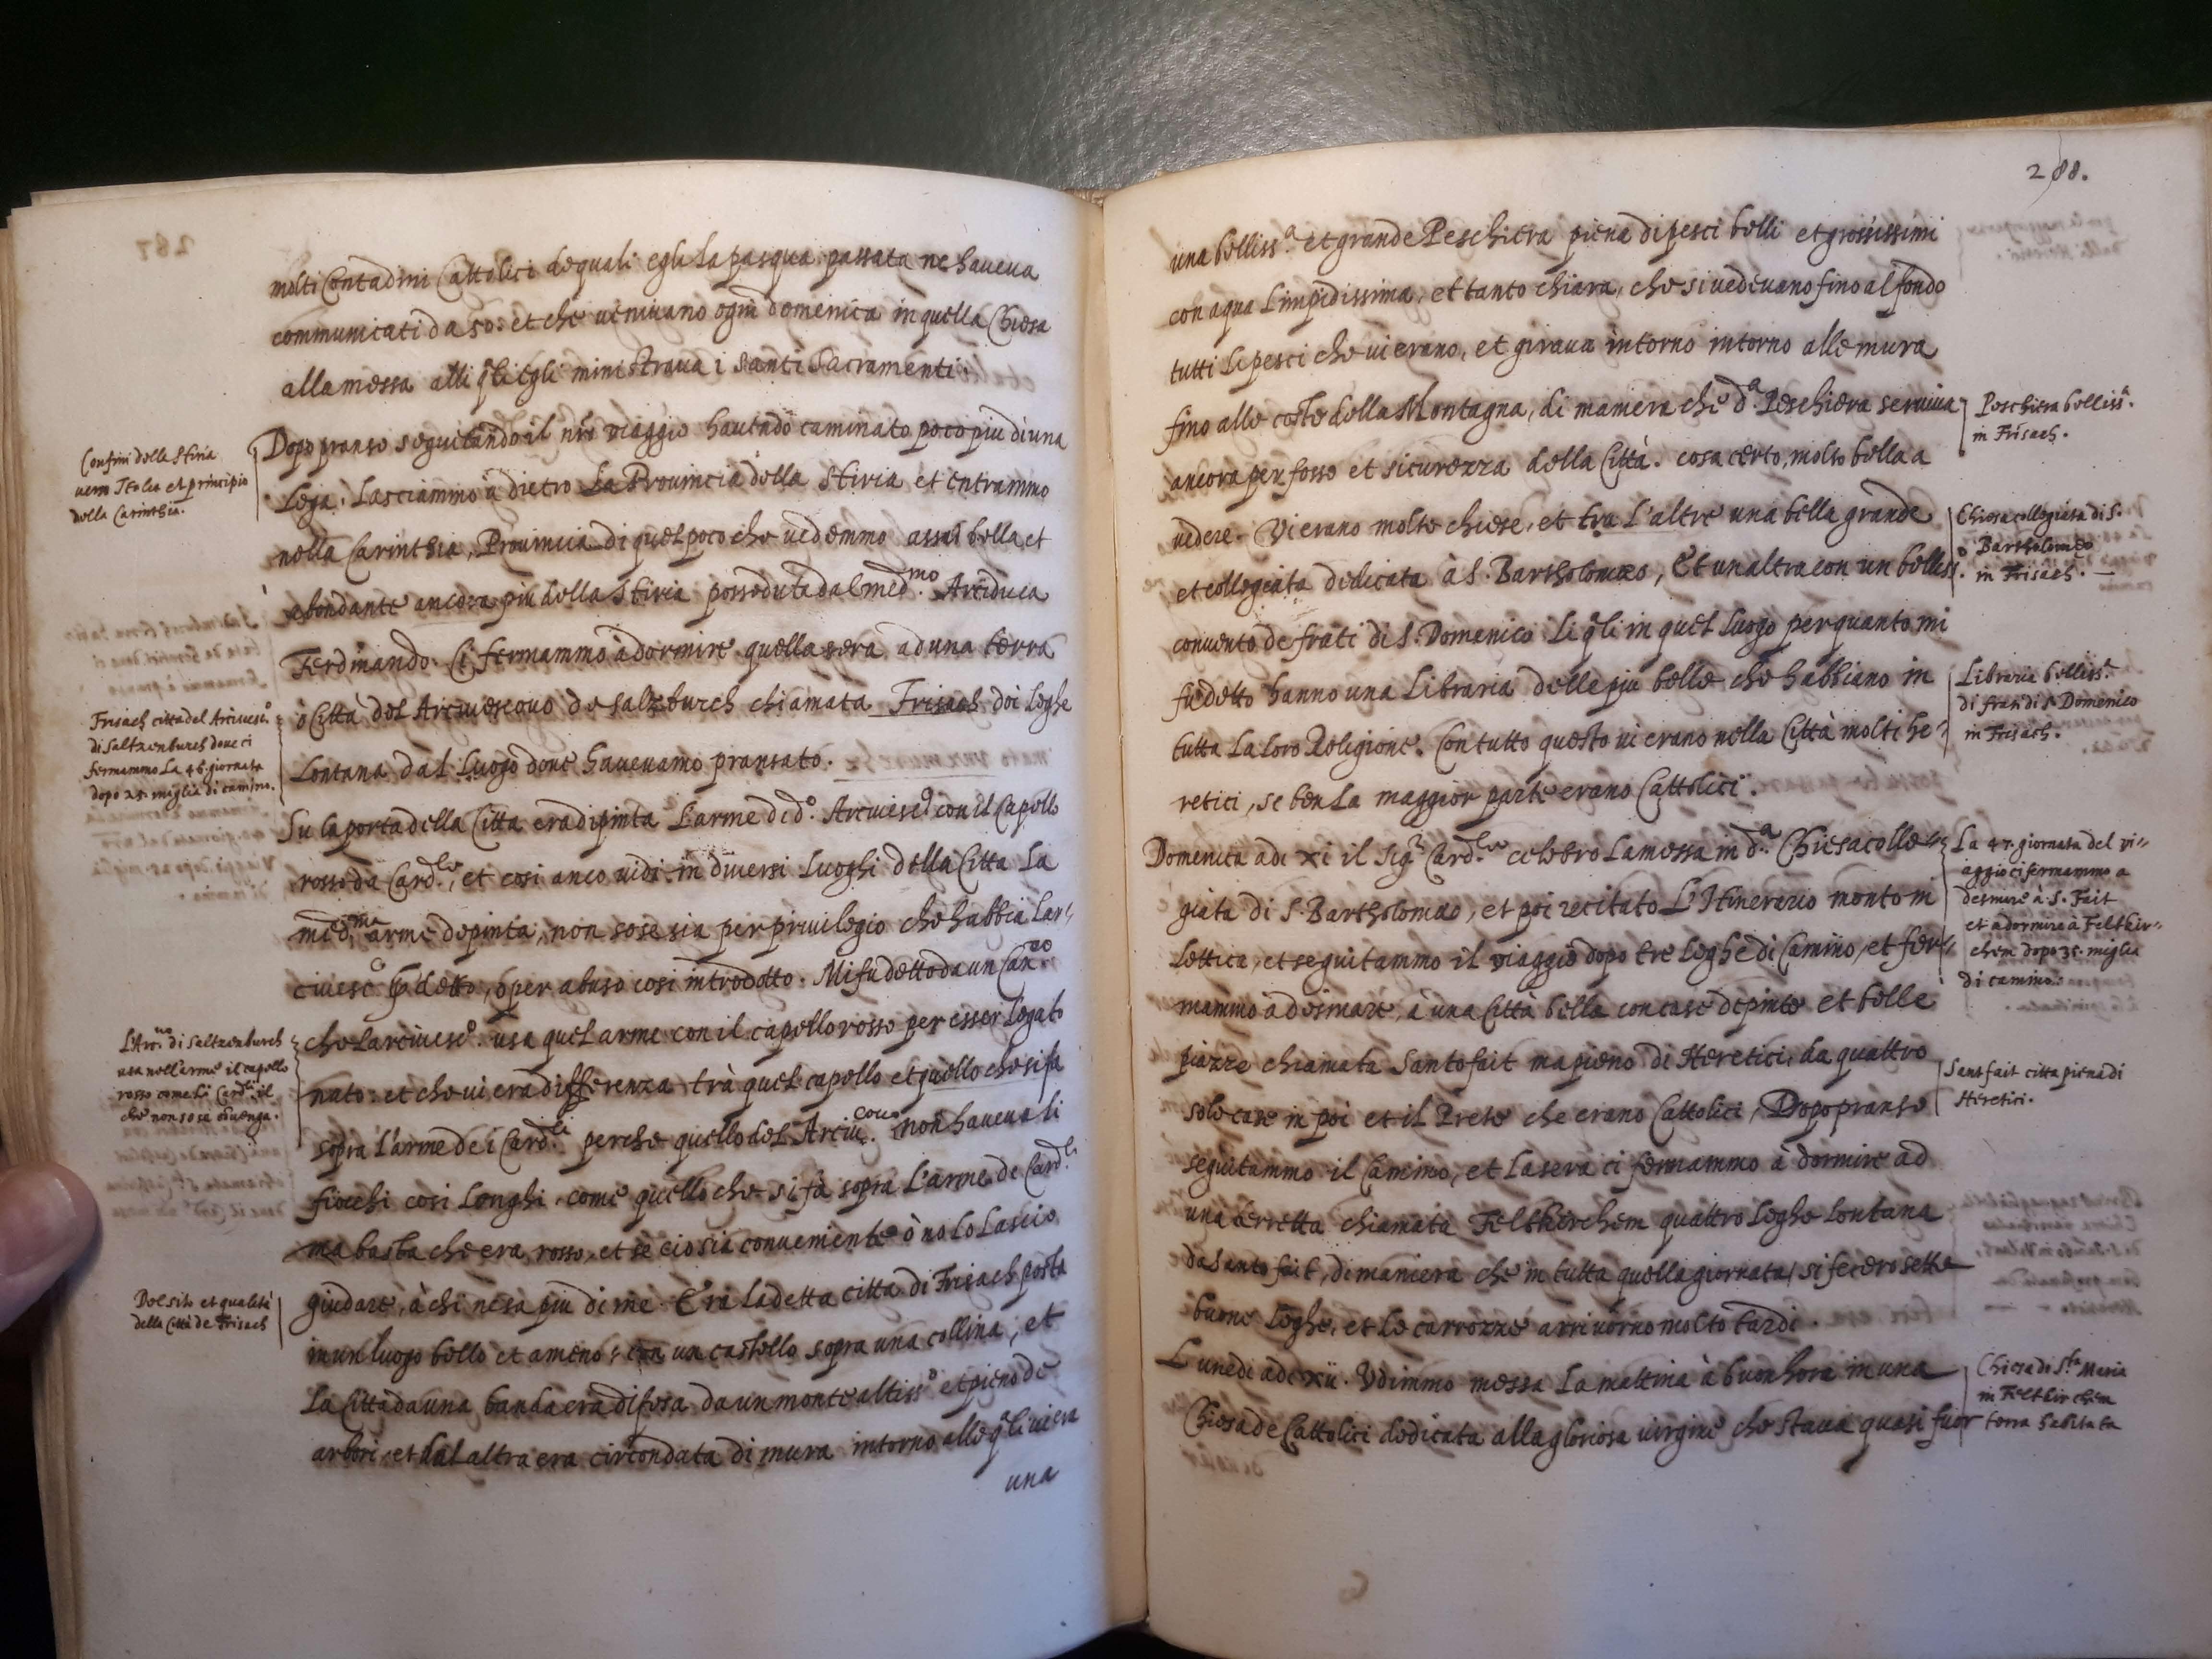 molti Contadini Cattolici de quali egli la pasqua passata ne haveva
communicati da 50: et che venivano ogni domenica in quella Chiesa
alla messa alli q.li egli ministrava i santi Sacramenti.
Confini della Stiria
verso Italia et principio
della Carinthia.
Dopo pranso seguitando il nro viaggio havendo caminato poco piu di una
lega, Lasciammo a dietro La Provincia della Stiria et entrammo
nella Carinthia, Provincia di quel poco che vedemmo assai bella et
abondante ancora piu della Stiria posseduta dal med.mo Arciduca
Ferdinando. Ci fermammo à dormire quella sera ad una terra
Frisach città del Arcivesc.o
di Saltzenburch dove ci
fermammo La 46. giornata
dopo 25. miglia di camino.
ò Città del Arcivescovo de Salzburch chiamata Frisach doi leghe
Lontana dal Luogo dove havevamo pransato.
Su la porta della Citta era dipinta L'arme di d.o Arcivesc.o con il Capello
rosso da Card.le, et cosi anco vidi in diversi Luoghi della Citta La
med.ma arme depinta, non so se sia per privilegio che habbia Lar=
civesc.o detto, o per abuso cosi introdotto. Mi fu detto da un Can.co
L'Arc.vo di Saltzenburch
usa nell'arme il capello
rosso come li Card.li il
che non so se convenga.
che Larcivesc.o usa quel arme con il capello rosso per esser Legato
nato: et che vi era differenza trà quel capello et quello che si fa
sopra L'arme de i Card.li perche quello del Arciv.covo non haveva li
fiocchi cosi Longhi come quello che si fà sopra L'arme de Card.li
ma basta che era rosso, et se cio sia conveniente ò no Lo Lascio
Del sito et qualità
della Città de Frisach
giudare, à chi ne sa piu di me. Era La detta città di Frisach posta
in un luogo bello et ameno, con un castello sopra una collina, et
La Citta da una banda era difesa da un monte altiss.o et pieno de
arbori, et dal altra era circondata di mura intorno alle q.li vi era
una
288.
una belliss.a et grande Peschiera piena di pesci belli et grossissimi
con aqua Limpidissima, et tanto chiara, che si vedevano fino al fondo
tutti li pesci che vi erano, et girava intorno intorno alle mura
fino alle coste della Montagna, di maniera che d.a Peschiera serviva
Peschiera belliss.a
in Frisach.
ancora per fosso et sicurezza della Città. cosa certo, molto bella a
vedere. Vi erano molte chiese, et tra L'altre una bella grande
Chiesa collegiata di S.
Bartholomeo
in Frisach.
et collegiata dedicata à S. Bartholomeo, Et un altra con un belliss.o
convento de frati di S. Domenico li q.li in quel Luogo per quanto mi
fu detto hanno una Libraria delle piu belle che habbiano in
Libraria belliss.a
di frati di S. Domenico
in Frisach.
tutta La loro Religione. Con tutto questo vi erano nella Città molti he=
retici, se ben La maggior parte erano Cattolici.
Domenica adi xi il Sig.r Card.le celebro La messa in d.a Chiesa colle=
giata di S. Bartholomeo, et poi recitato L'Itinerario monto in
Lettica, et seguitammo il viaggio dopo tre leghe di Camino, et fer=
La 47. giornata del vi=
aggio ci fermammo a
desinare à S. Fait
et a dormire à Feltkir=
chem dopo 35. miglia
di camino.
mammo à desinare, à una Città bella con case depinte et belle
piazze chiamata Santo fait ma pieno di Heretici, da quattro
Sant fait citta piena di
Heretici.
sole case in poi et il Prete che erano Cattolici, Dopo pranso
seguitammo il Camino, et La sera ci fermammo à dormire ad
una terretta chiamata Feltkirchem quattro leghe Lontana
da Santo fait, di maniera che in tutta quella giornata si fecero sette
buone leghe, et le carrozze arrivorno molto tardi.
Lunedi adi xii. Udimmo messa La mattina à buon hora in una
Chiesa de Cattolici dedicata alla gloriosa virgine che stava quasi fuor
Chiesa di S.ta Maria
in Feltkirchem
terra habitata